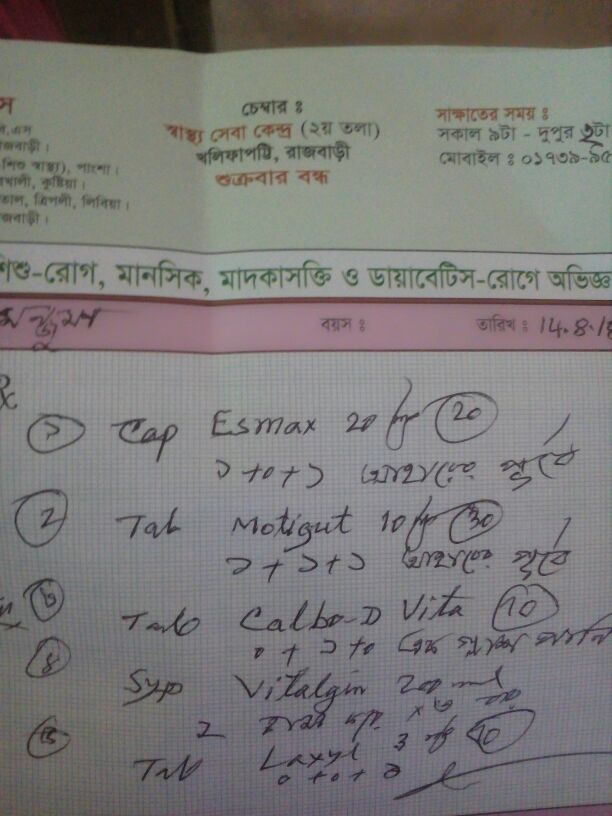 স
জবাড়ী।
শিশু স্বাস্থ্য), পাংশা।
খালী, কুষ্টিয়া।
তাল, ত্রিপলী, লিবিয়া।
জবাড়ী।
চেম্বার ঃ
স্বাস্থ্য সেবা কেন্দ্র (২য় তলা)
খলিফাপট্টি, রাজবাড়ী
শুক্রবার বন্ধ
সাক্ষাতের সময় ঃ
সকাল ৯টা - দুপুর ৩টা
মোবাইল ঃ ০১৭৩৯-৯৫
শিশু-রোগ, মানসিক, মাদকাসক্তি ও ডায়াবেটিস-রোগে অভিজ্ঞ
বয়স ঃ তারিখ ঃ 14.8.18
Rx
১ Cap Esmax 20 mg 20
১+০+১ আহারের পূর্বে
2 Tab Motigut 10 mg 30
১+১+১ আহারের পূর্বে
৩ Tab Calbo-D Vita 10
০+১+০ এক গ্লাস পানি
৪ Syp Vitalgin 200 ml
2 চামচ করে x ৩ বার
৫ Tab Laxyl 3 mg 10
০+০+১